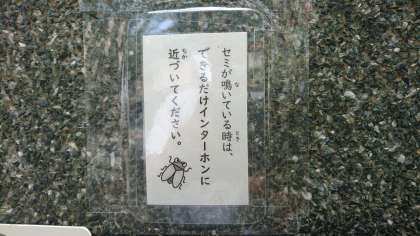 セミが鳴いている時は、
できるだけインターホンに
近づいてください。